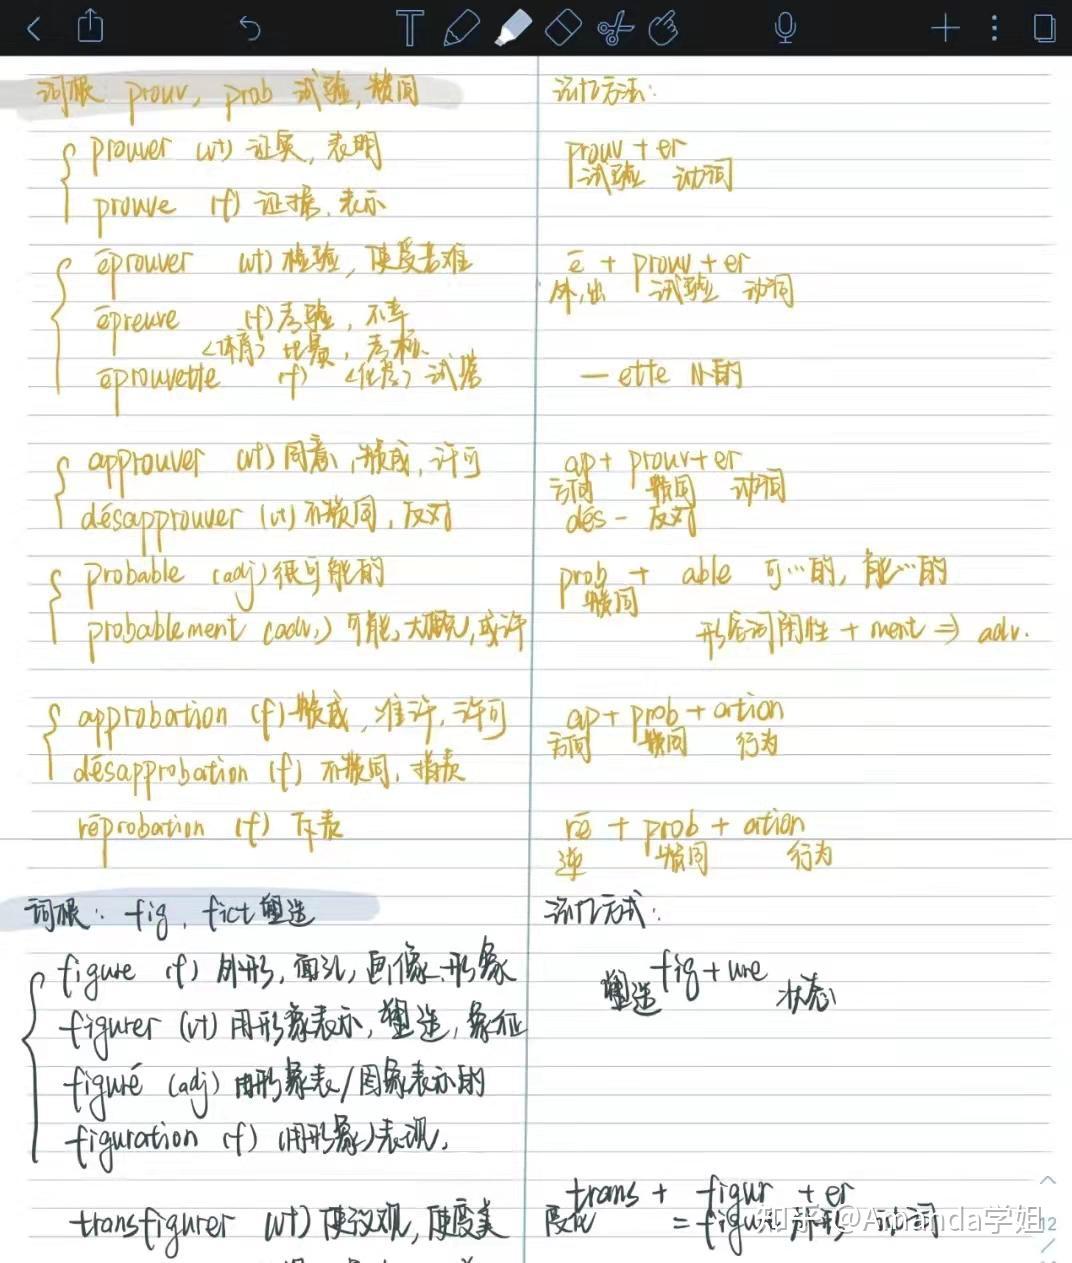 词根 prouv, prob 试验, 赞同
记忆方法:
prouver (vt) 证实, 表明
prouv + er
试验 动词
prouve (f) 证据, 表示
éprouver (vt) 检验, 使受苦难
é + prouv + er
外, 出 试验 动词
épreuve (f) 考验, 不幸
<体育> 比赛, 考核
éprouvette (f) <化学> 试管
— ette 小的
approuver (vt) 同意, 赞成, 许可
ap + prouv + er
方向 赞同 动词
désapprouver (vt) 不赞同, 反对
dés - 反对
probable (adj) 很可能的
prob + able 可…的, 能…的
赞同
probablement (adv.) 可能, 大概, 或许
形容词阴性 + ment ⇒ adv.
approbation (f) 赞成, 准许, 许可
ap + prob + ation
方向 赞同 行为
désapprobation (f) 不赞同, 指责
réprobation (f) 斥责
ré + prob + ation
逆 赞同 行为
词根: fig, fict 塑造
记忆方式:
figure (f) 外形, 面孔, 画像, 形象
fig + ure
塑造 状态
figurer (vt) 用形象表示, 塑造, 象征
figuré (adj) 用形象表/图象表示的
figuration (f) (用形象)表现,
trans + figur + er
transfigurer (vt) 使改观, 使变美
变化 = figure 外形 动词
知乎 @Amanda学姐
12